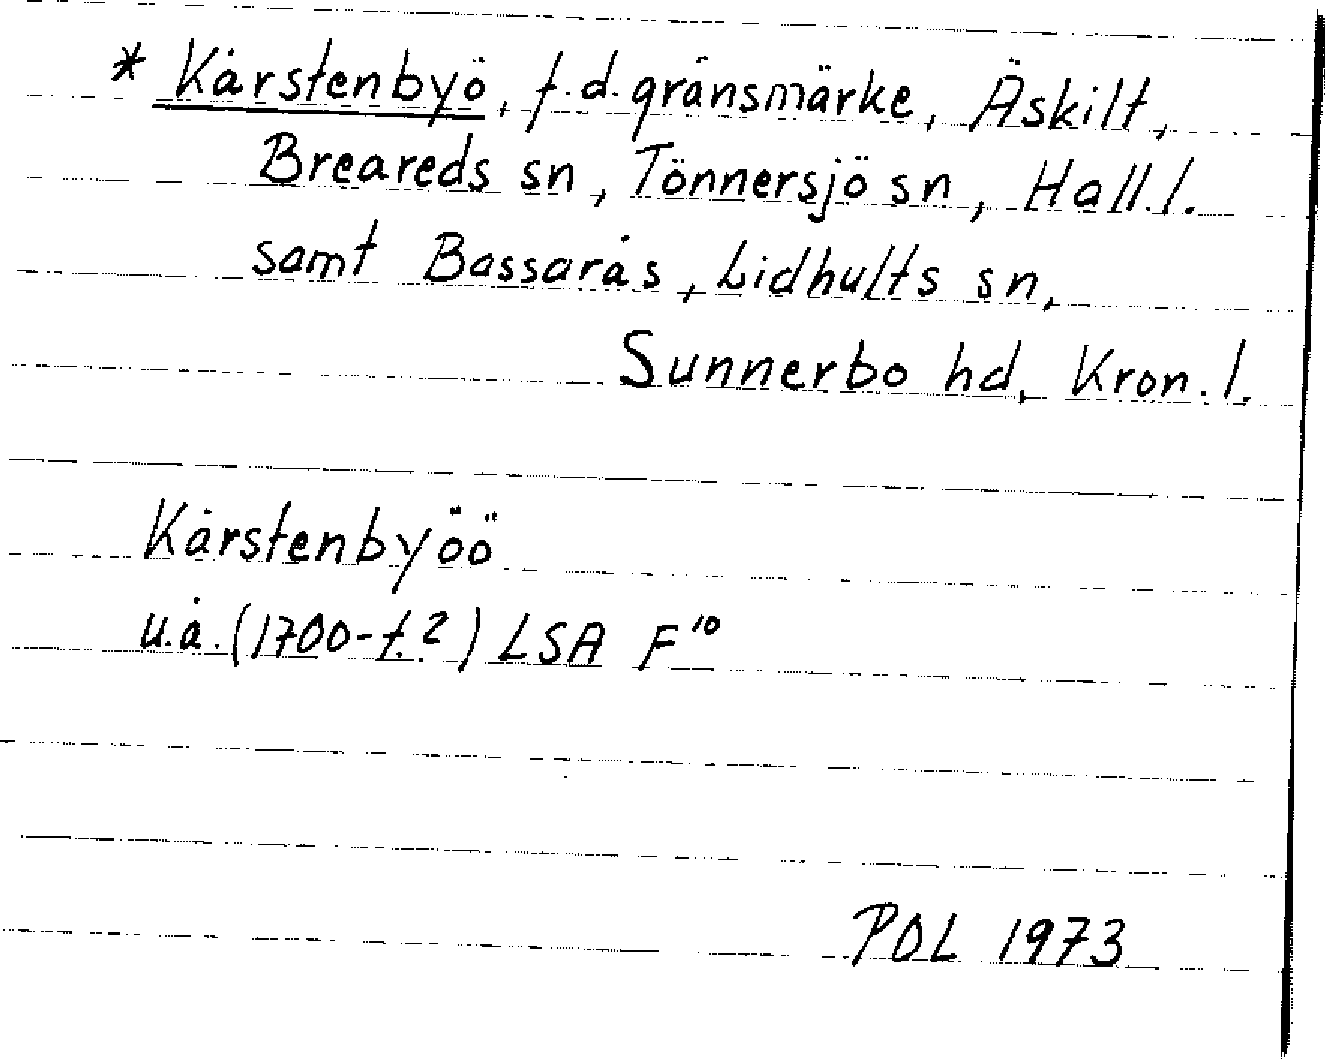 * Kårstenbyö, f.d. gränsmärke, Äskilt,
Breareds sn, Tönnersjö sn, Hall.l.
samt Bassarås, Lidhults sn,
Sunnerbo hd, Kron.l.
Kårstenbyöö
u.å. (1700-t.?) LSA F¹⁰
POL 1973